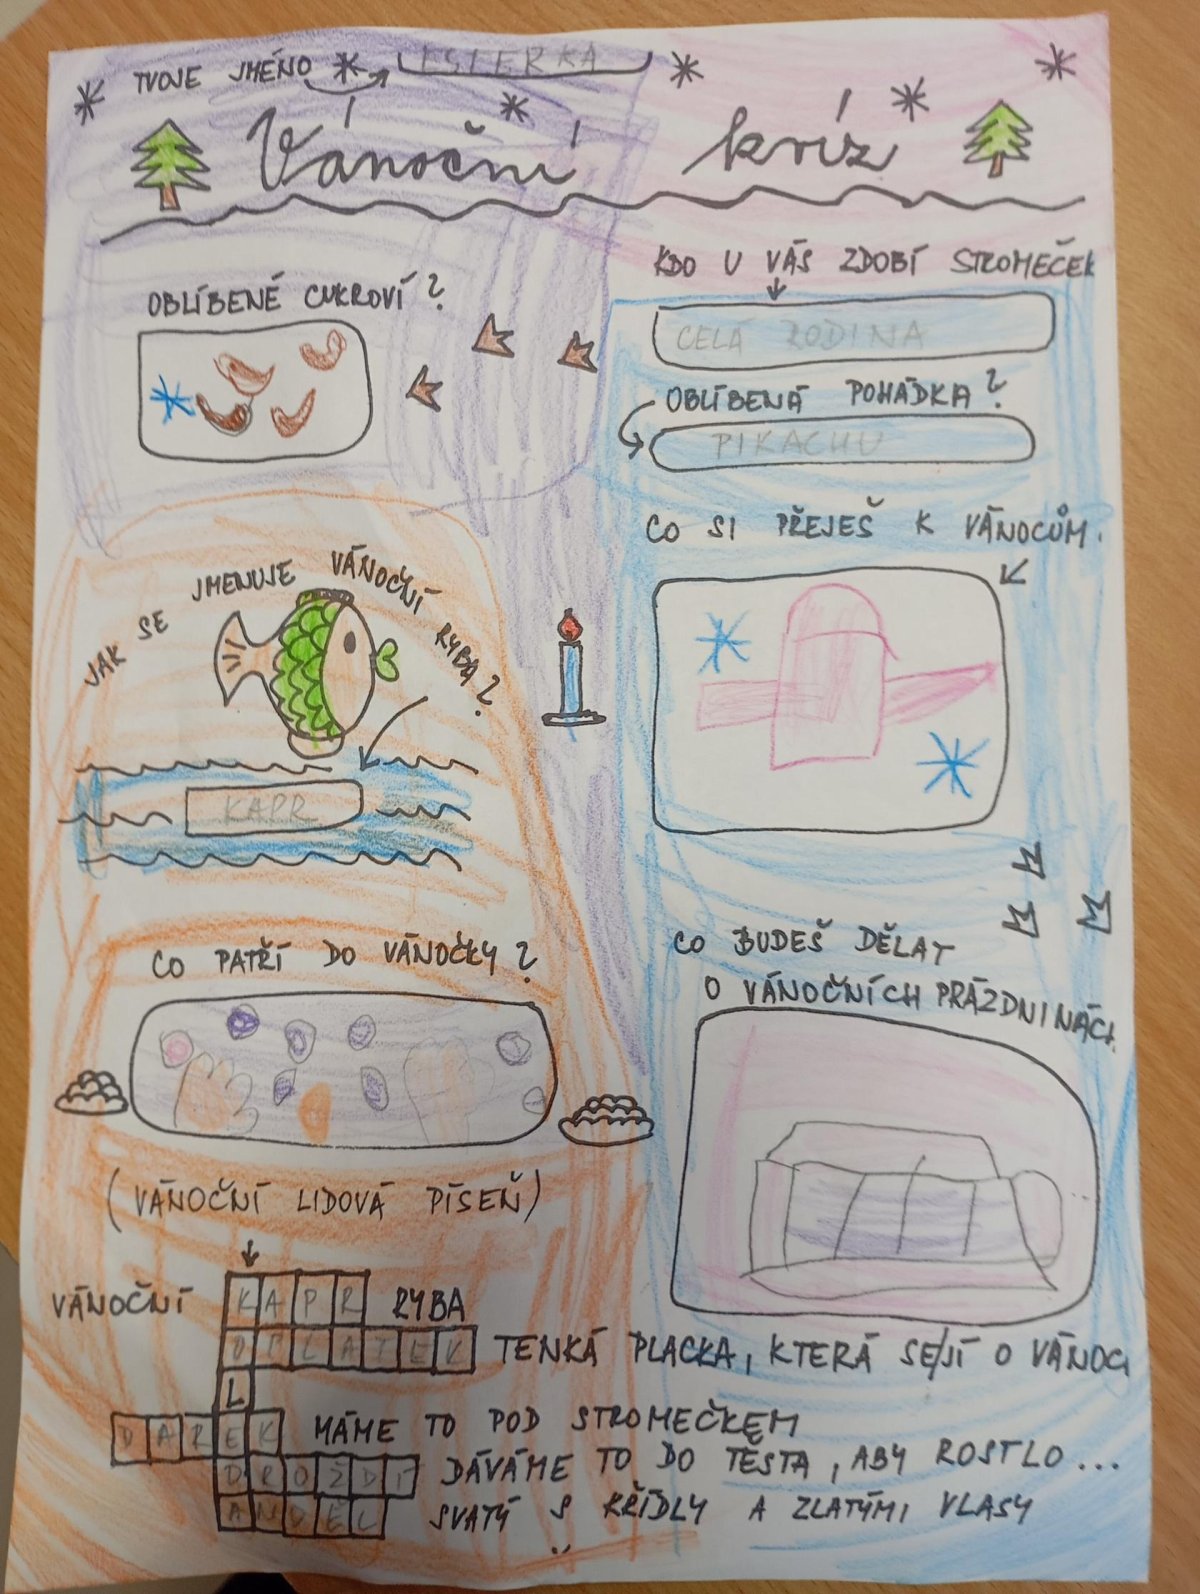 TVOJE JMÉNO ESTERKA
Vánoční kvíz
OBLÍBENÉ CUKROVÍ?
KDO U VÁS ZDOBÍ STROMEČEK
CELÁ RODINA
OBLÍBENÁ POHÁDKA?
PIKACHU
CO SI PŘEJEŠ K VÁNOCŮM.
JAK SE JMENUJE VÁNOČNÍ RYBA?
KAPR
CO PATŘÍ DO VÁNOČKY?
CO BUDEŠ DĚLAT
O VÁNOČNÍCH PRÁZDNINÁCH
(VÁNOČNÍ LIDOVÁ PÍSEŇ)
VÁNOČNÍ KAPR RYBA
OPLATEK TENKÁ PLACKA, KTERÁ SE JÍ O VÁNOC
L
DAREK MÁME TO POD STROMEČKEM
DROŽDÍ DÁVÁME TO DO TĚSTA, ABY ROSTLO...
ANDĚL SVATÝ S KŘÍDLY A ZLATÝMI VLASY